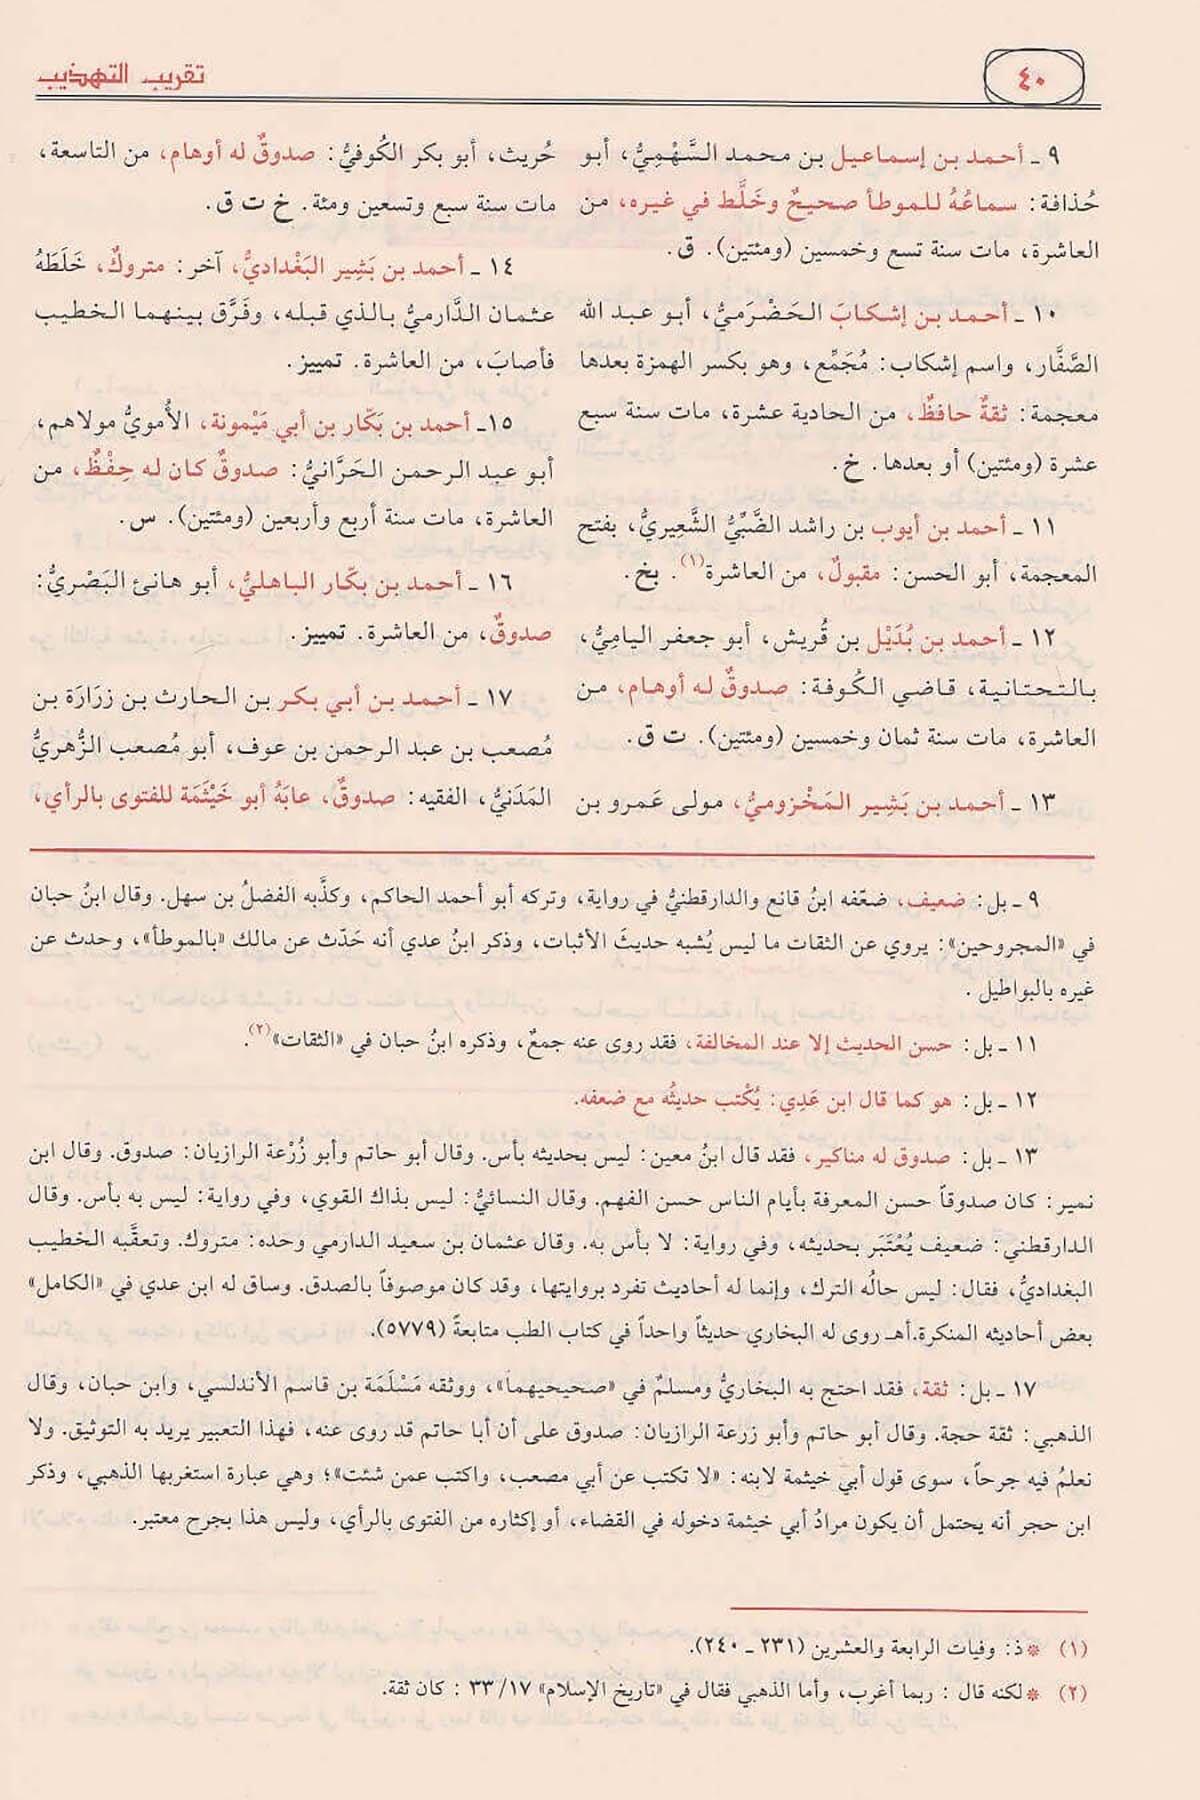 تقريب التهذيب
٤٠
٩ ـ أحمد بن إسماعيل بن محمد السَّهْمِيُّ، أبو
حُذافة: سماعُهُ للموطأ صحيحٌ وخَلَّط في غيره، من
العاشرة، مات سنة تسع وخمسين (ومئتين). ق.
١٠ ـ أحمد بن إشكابَ الحَضْرَميُّ، أبو عبد الله
الصَّفَّار، واسم إشكاب: مُجَمِّع، وهو بكسر الهمزة بعدها
معجمة: ثقةٌ حافظٌ، من الحادية عشرة، مات سنة سبع
عشرة (ومئتين) أو بعدها. خ.
١١ ـ أحمد بن أيوب بن راشد الضَّبِّيُّ الشَّعِيريُّ، بفتح
المعجمة، أبو الحسن: مقبولٌ، من العاشرة(١). بخ.
١٢ ـ أحمد بن بُدَيْل بن قُريش، أبو جعفر اليامِيُّ،
بالتحتانية، قاضي الكُوفة: صدوقٌ له أوهام، من
العاشرة، مات سنة ثمان وخمسين (ومئتين). ت ق.
١٣ ـ أحمد بن بَشِير المَخْزوميُّ، مولى عَمرو بن
حُريث، أبو بكر الكُوفيُّ: صدوقٌ له أوهام، من التاسعة،
مات سنة سبع وتسعين ومئة. خ ت ق.
١٤ ـ أحمد بن بَشِير البَغْداديُّ، آخر: متروكٌ، خَلَطَهُ
عثمان الدَّارميُّ بالذي قبله، وفَرَّق بينهما الخطيب
فأصابَ، من العاشرة. تمييز.
١٥ـ أحمد بن بَكّار بن أبي مَيْمونة، الأُمويُّ مولاهم،
أبو عبد الرحمن الحَرَّانيُّ: صدوقٌ كان له حِفْظٌ، من
العاشرة، مات سنة أربع وأربعين (ومئتين). س.
١٦ ـ أحمد بن بكّار الباهليُّ، أبو هانئ البَصْريُّ:
صدوقٌ، من العاشرة. تمييز.
١٧ ـ أحمد بن أبي بكر بن الحارث بن زرَارَة بن
مُصعب بن عبد الرحمن بن عوف، أبو مُصعب الزُّهريُّ
المَدَنيُّ، الفقيه: صدوقٌ، عابَهُ أبو خَيْثَمَة للفتوى بالرأي،
٩ ـ بل: ضعيف، ضعّفه ابنُ قانع والدارقطنيُّ في رواية، وتركه أبو أحمد الحاكم، وكذَّبه الفضلُ بن سهل. وقال ابنُ حبان
في «المجروحين»: يروي عن الثقات ما ليس يُشبه حديثَ الأثبات، وذكر ابنُ عدي أنه حَدّث عن مالك «بالموطأ»، وحدث عن
غيره بالبواطيل.
١١ ـ بل: حسن الحديث إلا عند المخالفة، فقد روى عنه جمعٌ، وذكره ابنُ حبان في «الثقات»(٢).
١٢ ـ بل: هو كما قال ابن عَدِي: يُكْتب حديثُه مع ضعفه.
١٣ ـ بل: صدوق له مناكير، فقد قال ابنُ معين: ليس بحديثه بأس. وقال أبو حاتم وأبو زُرْعة الرازيان: صدوق. وقال ابن
نمير: كان صدوقاً حسن المعرفة بأيام الناس حسن الفهم. وقال النسائيُّ: ليس بذاك القوي، وفي رواية: ليس به بأس. وقال
الدارقطني: ضعيف يُعْتَبَر بحديثه، وفي رواية: لا بأس به. وقال عثمان بن سعيد الدارمي وحده: متروك. وتعقَّبه الخطيب
البغداديُّ، فقال: ليس حالُه الترك، وإنما له أحاديث تفرد بروايتها، وقد كان موصوفاً بالصدق. وساق له ابن عدي في «الكامل»
بعض أحاديثه المنكرة.أهـ روى له البخاري حديثاً واحداً في كتاب الطب متابعةً (٥٧٧٩).
١٧ ـ بل: ثقة، فقد احتج به البخاريُّ ومسلمٌ في «صحيحيهما»، ووثقه مَسْلَمَة بن قاسم الأندلسي، وابن حبان، وقال
الذهبي: ثقة حجة. وقال أبو حاتم وأبو زرعة الرازيان: صدوق على أن أبا حاتم قد روى عنه، فهذا التعبير يريد به التوثيق. ولا
نعلمُ فيه جرحاً، سوى قول أبي خيثمة لابنه: «لا تكتب عن أبي مصعب، واكتب عمن شئت»؛ وهي عبارة استغربها الذهبي، وذكر
ابن حجر أنه يحتمل أن يكون مرادُ أبي خيثمة دخوله في القضاء، أو إكثاره من الفتوى بالرأي، وليس هذا بجرح معتبر.
(١) * ذ: وفيات الرابعة والعشرين (٢٣١ ـ ٢٤٠).
(٢) * لكنه قال: ربما أغرب، وأما الذهبي فقال في «تاريخ الإسلام» ١٧/ ٣٣: كان ثقة.